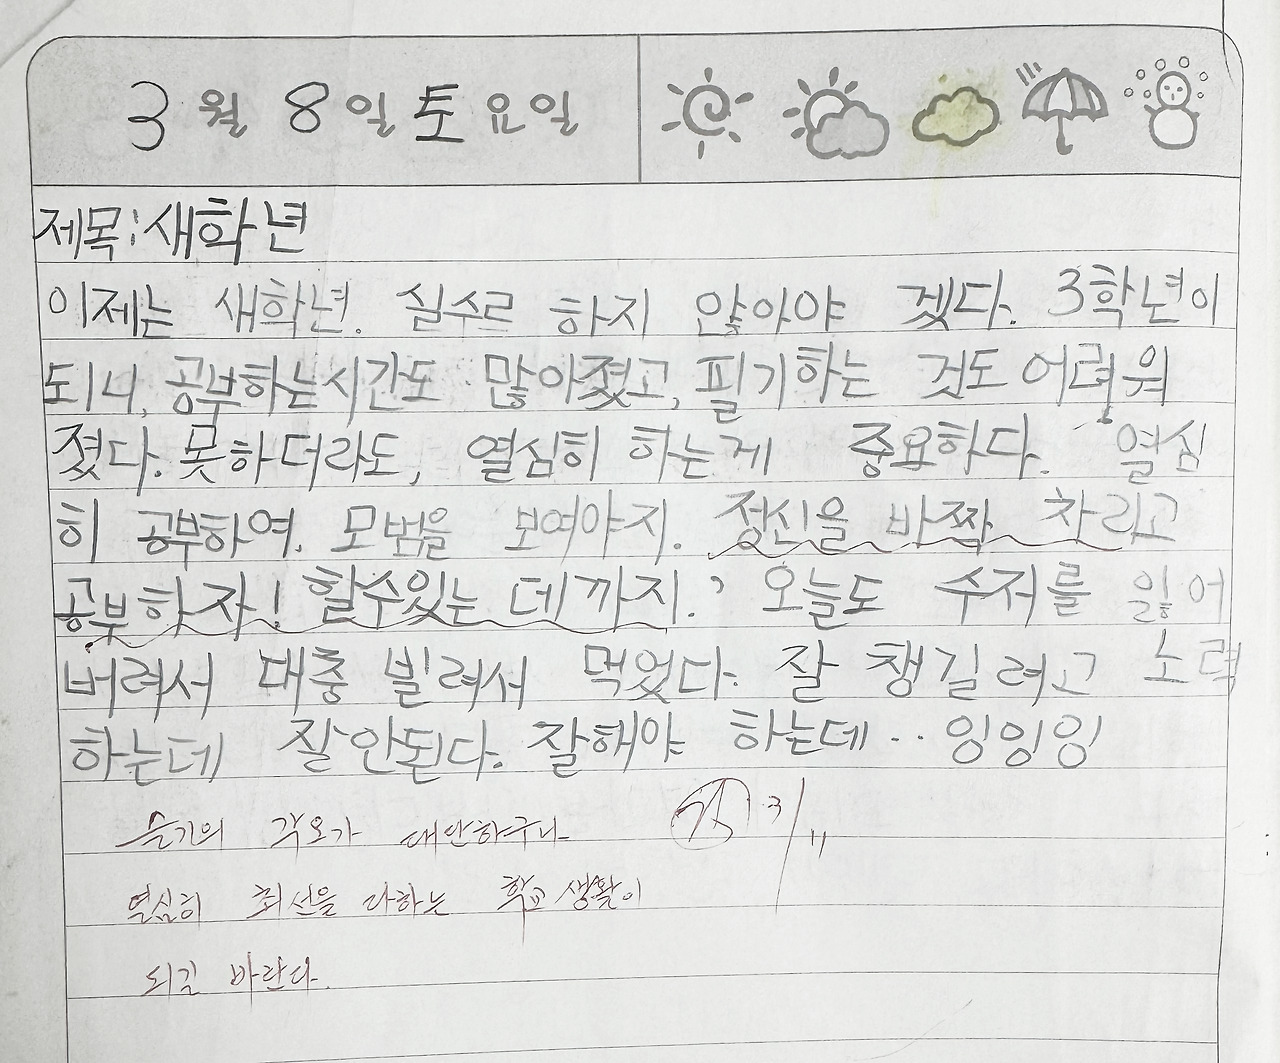 3월 8일 토요일
제목: 새학년
이제는 새학년. 실수르 하지 않아야 겠다. 3학년이
되니, 공부하는시간도 많아졌고, 필기하는 것도 어려워
졌다. 못하더라도, 열심히 하는게 중요하다. 열심
히 공부하여. 모범을 보여야지. 정신을 바짝 차리고
공부하자! 할수있는 데까지.' 오늘도 수저를 잃어
버려서 대충 빌려서 먹었다. 잘 챙길려고 노력
하는데 잘안된다. 잘해야 하는데.. 잉잉잉
슬기의 각오가 대단하구나 3/11
열심히 최선을 다하는 학교생활이
되길 바란다.